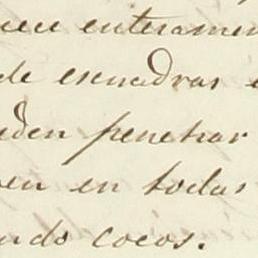 enteramen
de escuadras
eden penetrar
en en todas
ndo cocos.